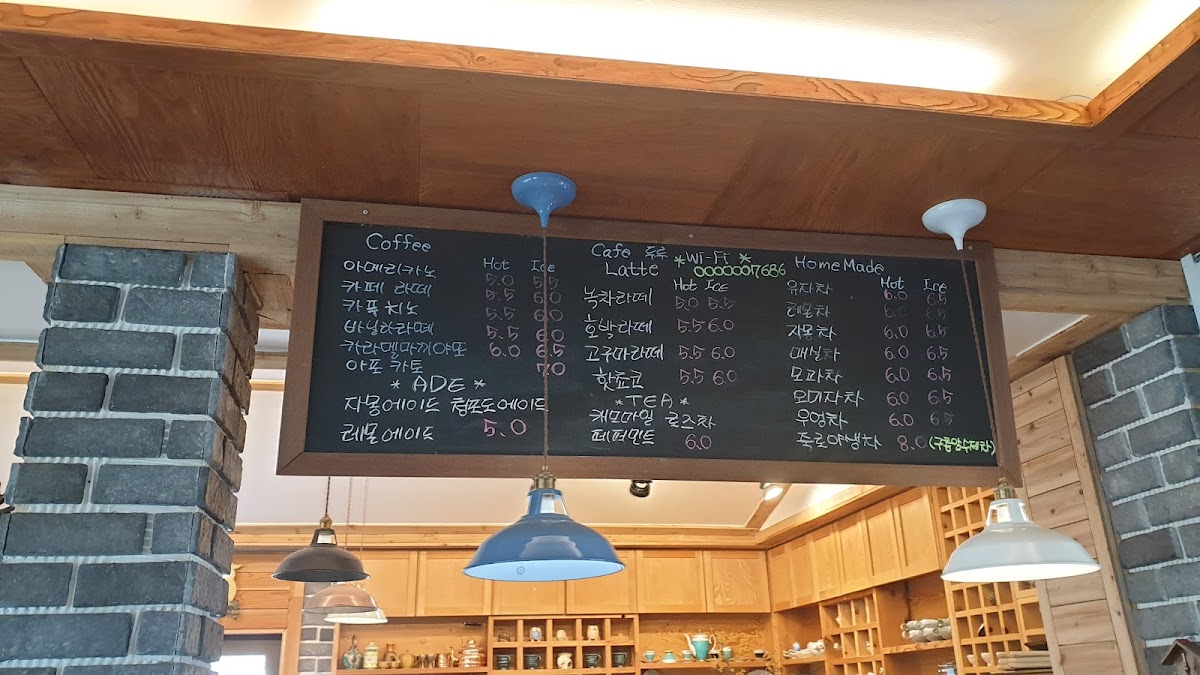 Coffee
Hot Ice
아메리카노 5.0 5.5
카페 라떼 5.5 6.0
카푸치노 5.5 6.0
바닐라라떼 5.5 6.0
카라멜마끼야또 6.0 6.5
아포카토 7.0
*ADE*
자몽에이드 청포도에이드
레몬에이드 5.0
Cafe 두루
Latte
*Wi-Fi*
0000007686
Hot Ice
녹차라떼 5.0 5.5
호박라떼 5.5 6.0
고구마라떼 5.5 6.0
핫쵸코 5.5 6.0
*TEA*
캐모마일 로즈차
페퍼민트 6.0
HomeMade
Hot Ice
유자차 6.0 6.5
레몬차 6.0 6.5
자몽차 6.0 6.5
매실차 6.0 6.5
모과차 6.0 6.5
오미자차 6.0 6.5
우엉차 6.0 6.5
죽로야생차 8.0